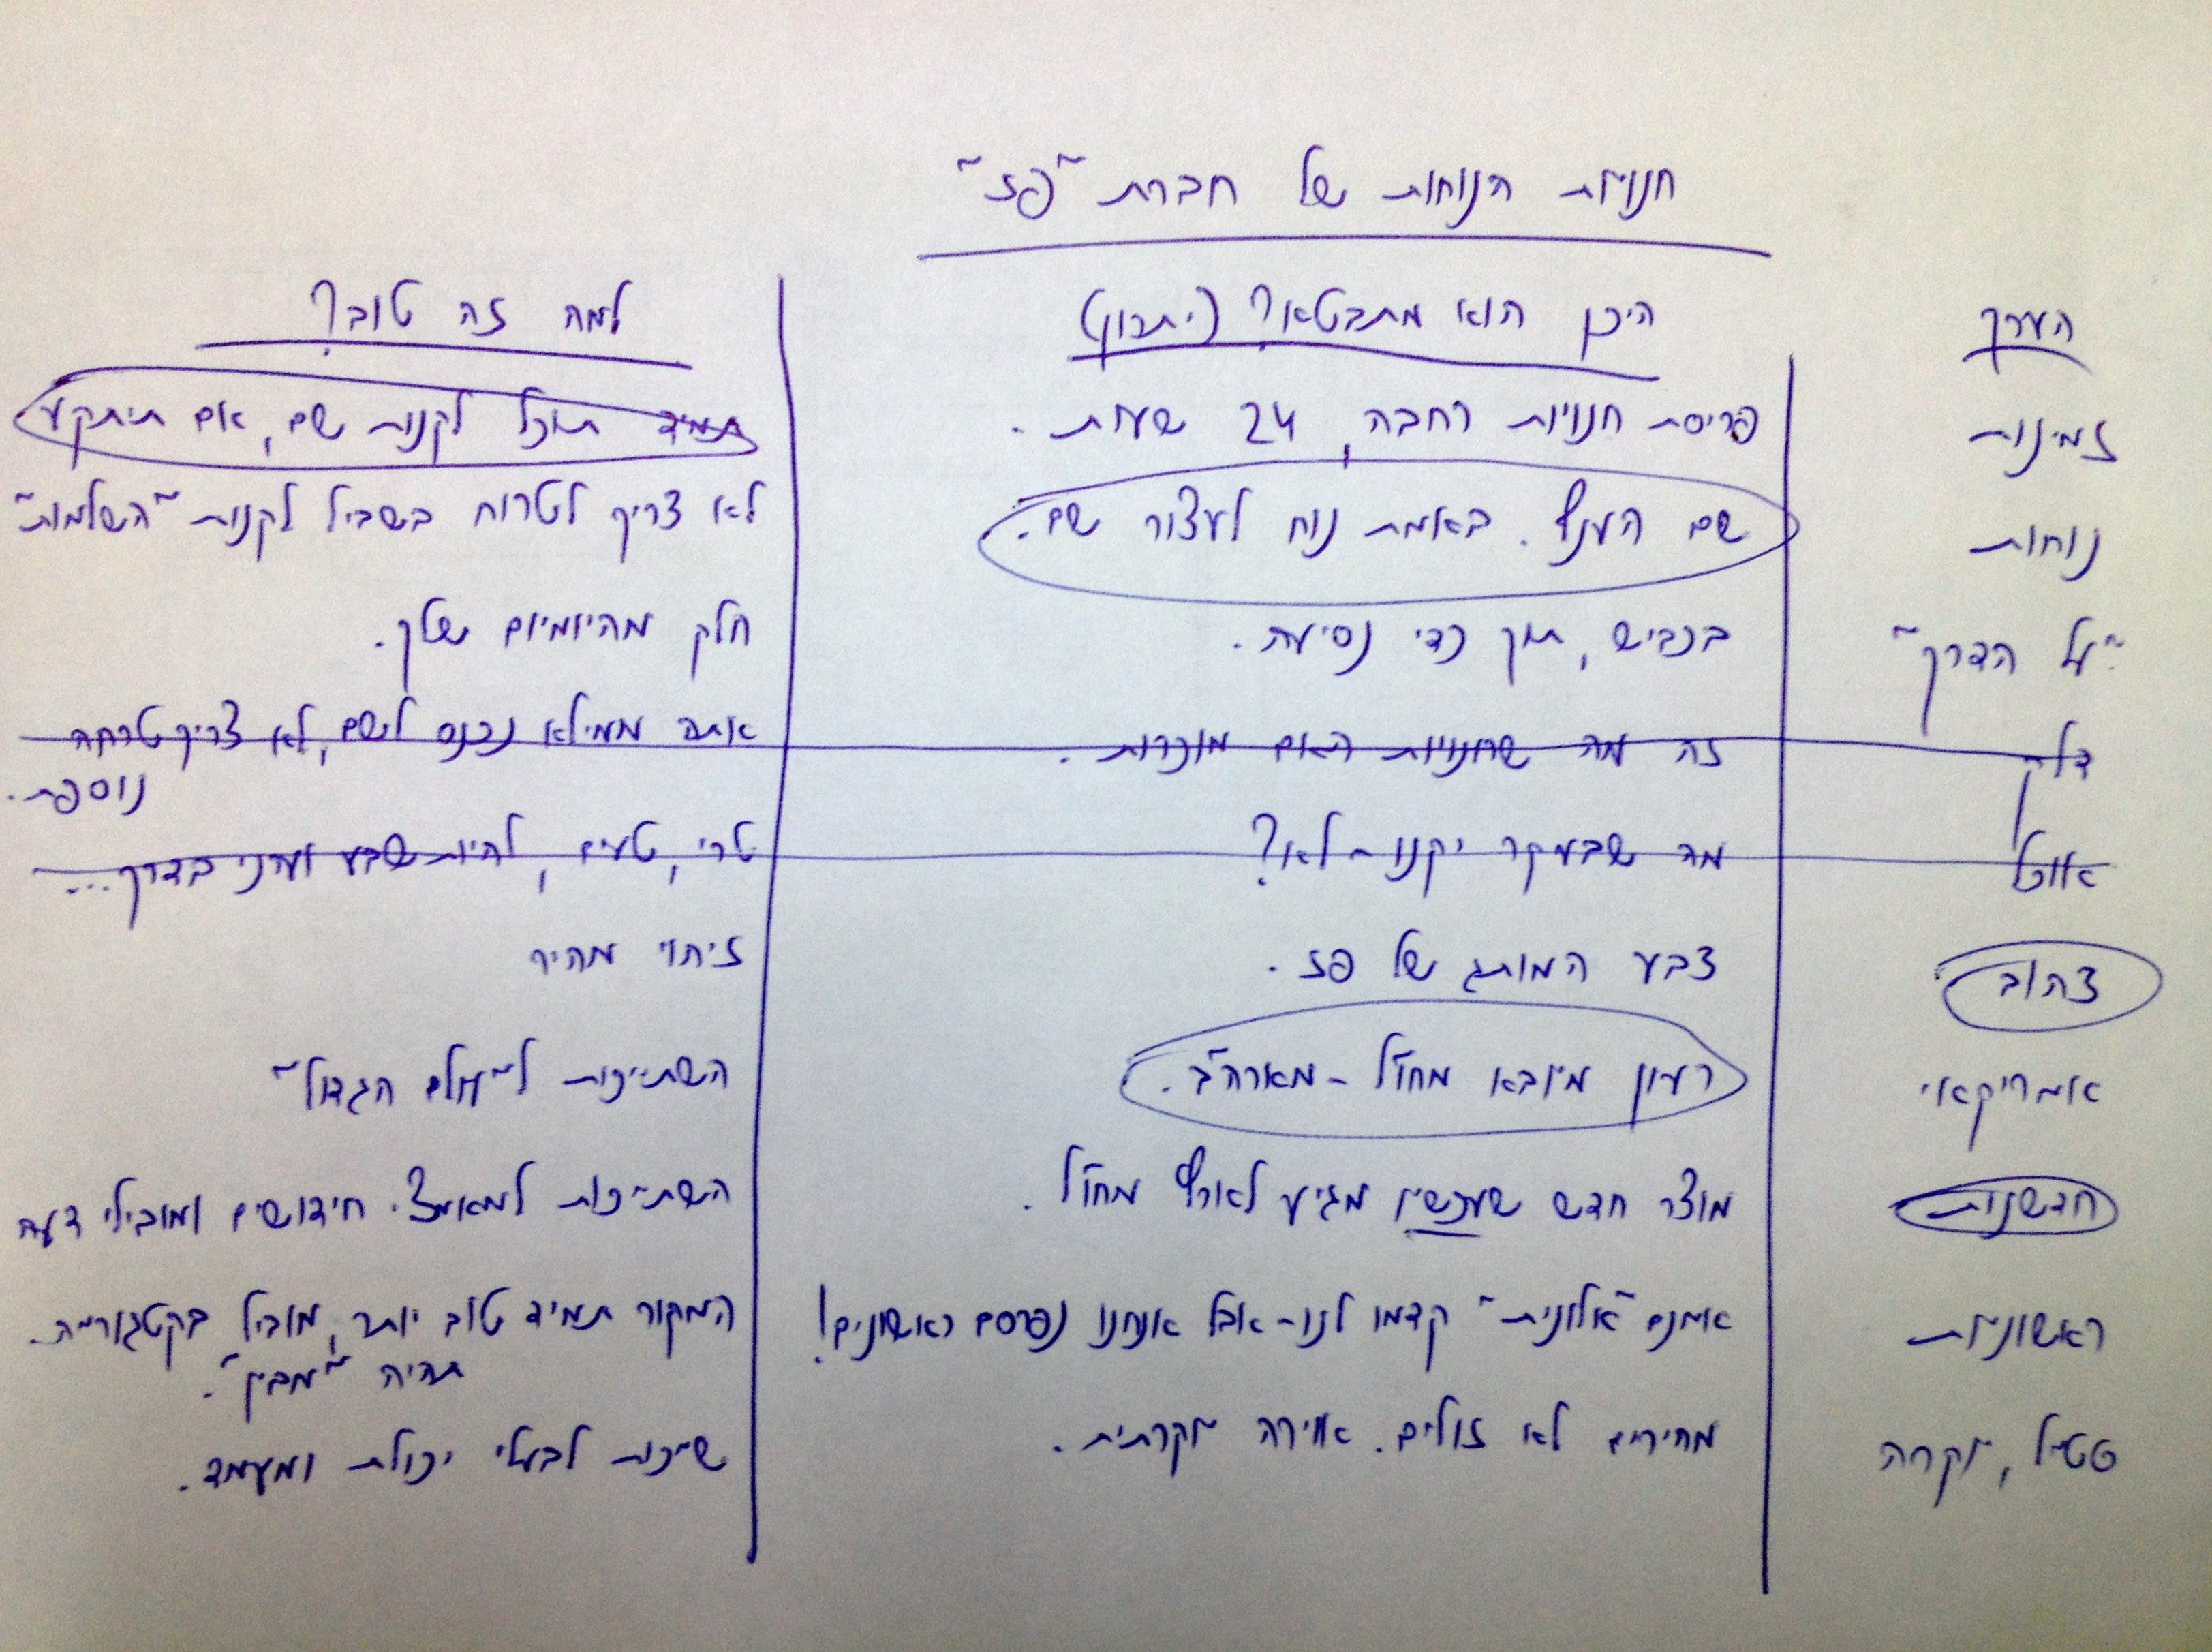 חנויות הנוחות של חברת "פז"
הערך היכן הוא מתבטא? (יתרון) למה זה טוב?
זמינות פריסת חנויות רחבה, 24 שעות. תמיד תוכל לקנות שם, אם תיתקע
נוחות שם הענף. באמת נוח לעצור שם. לא צריך לטרוח בשביל לקנות "השלמות"
"על הדרך" בכביש, תוך כדי נסיעה. חלק מהיומיום שלך.
דלק זה מה שחנויות האם מוכרות. אתה ממילא נכנס לשם, לא צריך טרחה
נוספת.
אוכל מה שבעקר יקנו - לא? טרי, טעים, להיות שבע וערני בדרך...
צהוב צבע המותג של פז. זיהוי מהיר
אמריקאי רעיון מיובא מחו"ל - מארה"ב. השתייכות ל"עולם הגדול"
חדשנות מוצר חדש שעכשיו מגיע לארץ מחו"ל. השתייכות למאמצי חידושים ומובילי דעה
ראשוניות אמנם "אלונית" קדמו לנו - אבל אנחנו נפרסם ראשונים! המקור תמיד טוב יותר, מוביל בקטגוריה.
תהיה "מבין".
סטייל, יוקרה מחירים לא זולים. אוירה יוקרתית. שייכות לבעלי יכולת ומעמד.